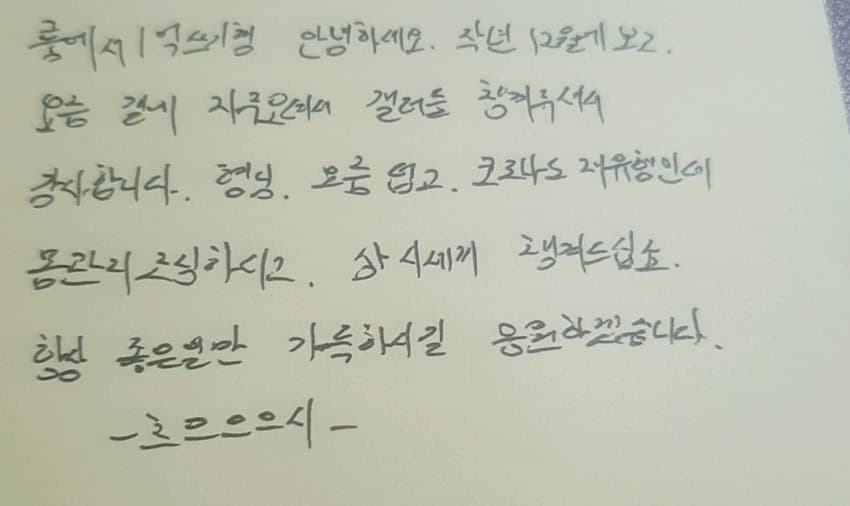 룸에서 1억쓰기형 안녕하세요. 작년 12월에 보고.
요즘 갤에 자주오셔서 갤러들 챙겨주셔서
감사합니다. 형님. 요즘 덥고. 코로나도 재유행인데
몸관리 조심하시고. 삼시세끼 챙겨드십쇼.
항상 좋은일만 가득하시길 응원하겠습니다.
-흐으으으시-